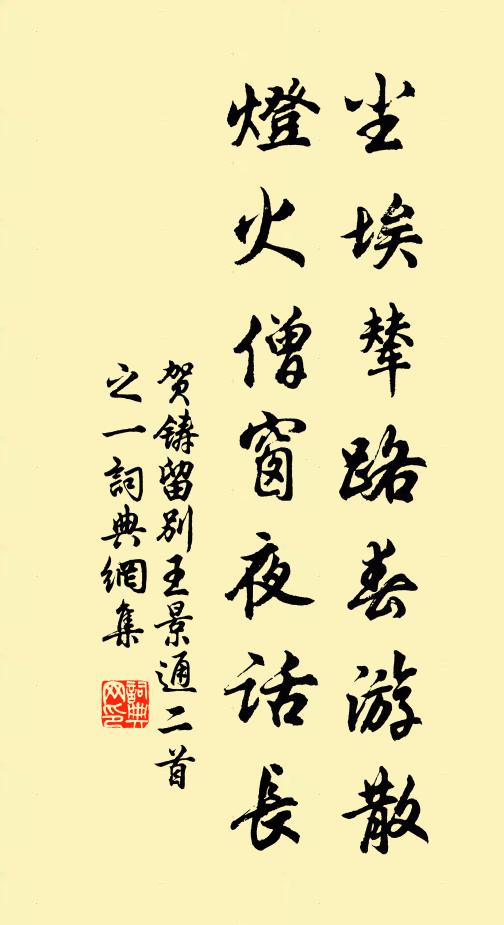 尘埃辇路春游散
燈火僧窗夜话長
贺鑄留别王景通二首
之一詞典網集
詞典網印